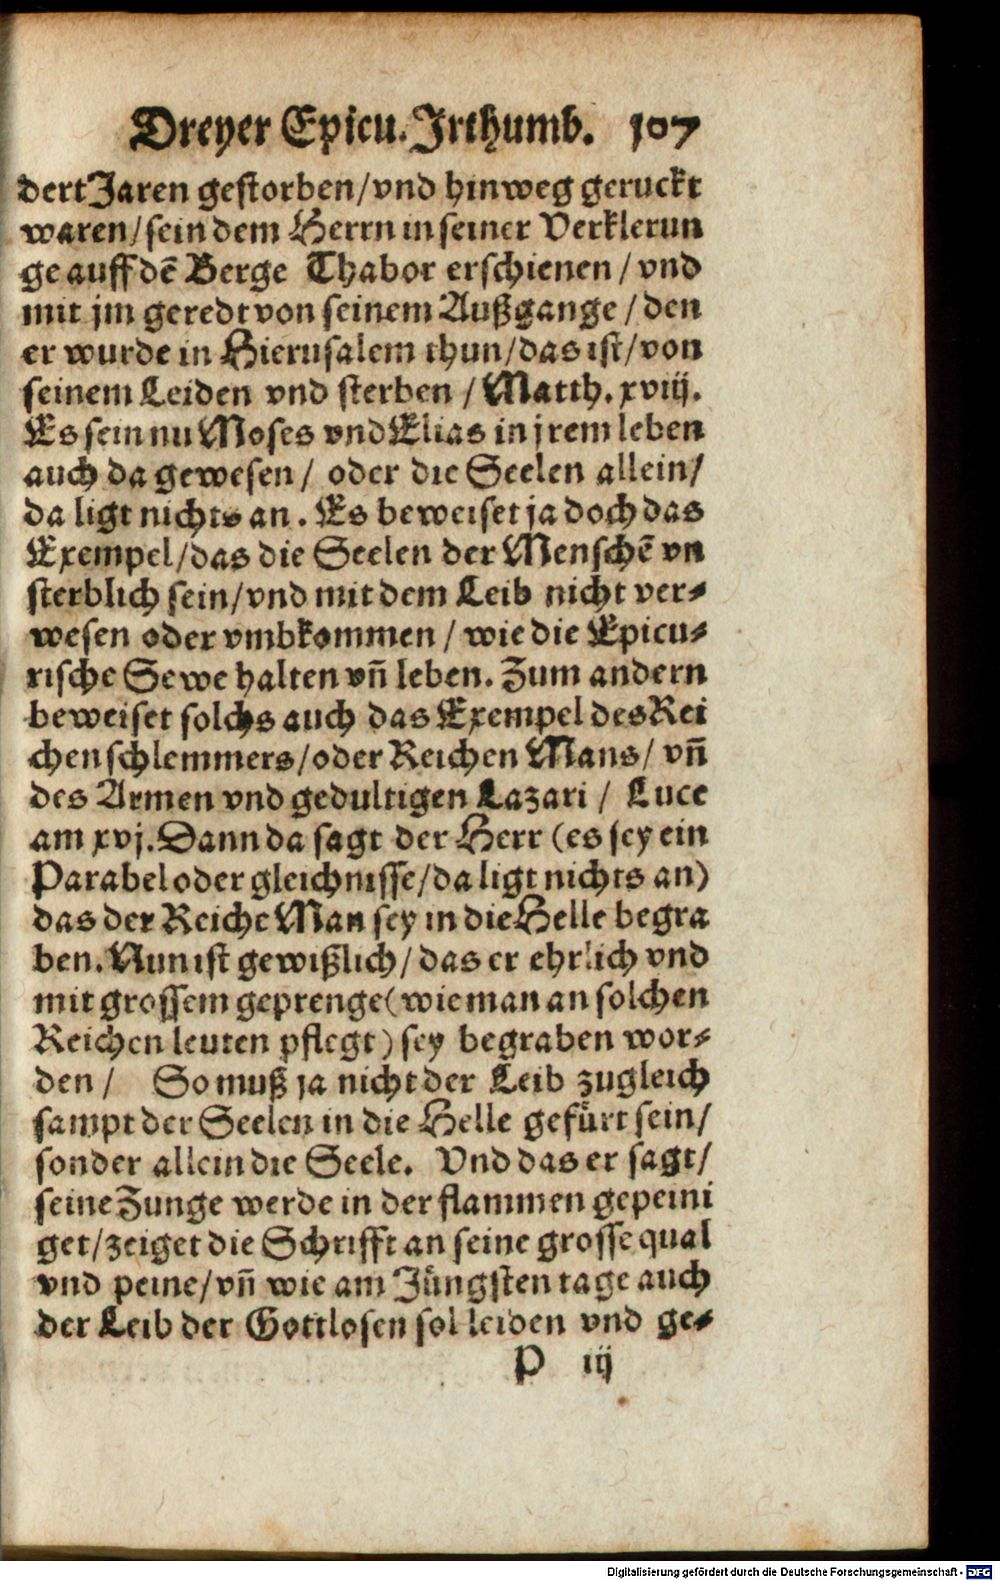 Dreyer Epicu. Irthumb. 107
dert Jaren gestorben/vnd hinweg geruckt
waren/sein dem Herrn in seiner Verklerun
ge auff dẽ Berge Thabor erschienen/vnd
mit jm geredt von seinem Außgange/den
er wurde in Hierusalem thun/das ist/von
seinem Leiden vnd sterben/Matth. xviij.
Es sein nu Moses vnd Elias in jrem leben
auch da gewesen/ oder die Seelen allein/
da ligt nichts an. Es beweiset ja doch das
Exempel/das die Seelen der Menschẽ vn
sterblich sein/vnd mit dem Leib nicht ver-
wesen oder vmbkommen/wie die Epicu-
rische Sewe halten vñ leben. Zum andern
beweiset solchs auch das Exempel des Rei
chen schlemmers/oder Reichen Mans/vñ
des Armen vnd gedultigen Lazari/ Luce
am xvj. Dann da sagt der Herr (es sey ein
Parabel oder gleichnisse/da ligt nichts an)
das der Reiche Man sey in die Helle begra
ben. Nun ist gewißlich/das er ehrlich vnd
mit grossem geprenge (wie man an solchen
Reichen leuten pflegt) sey begraben wor-
den/ So muß ja nicht der Leib zugleich
sampt der Seelen in die Helle gefürt sein/
sonder allein die Seele. Vnd das er sagt/
seine Zunge werde in der flammen gepeini
get/zeiget die Schrifft an seine grosse qual
vnd peine/vñ wie am Jüngsten tage auch
der Leib der Gottlosen sol leiden vnd ge-
P iij
Digitalisierung gefördert durch die Deutsche Forschungsgemeinschaft - DFG